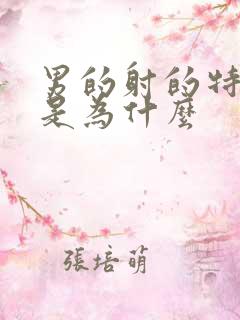 男的射的特
是為什麼
張培萌